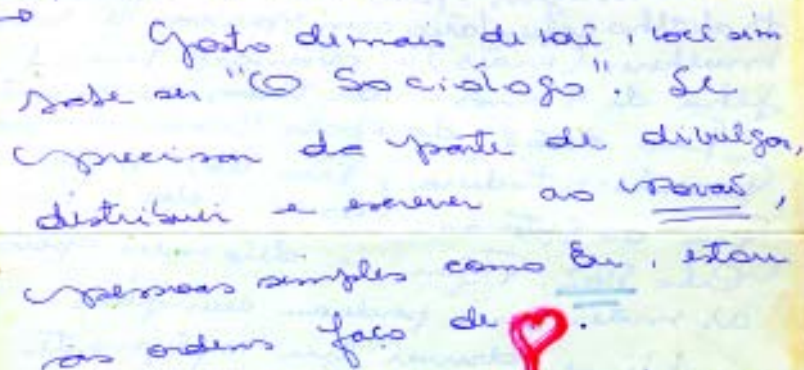 Gosto demais de você, você sim
sabe ser "O Sociólogo". Se
precisar da parte de divulgar,
distribuir e escrever ao povão,
pessoas simples como Eu, estou
as ordens faço de